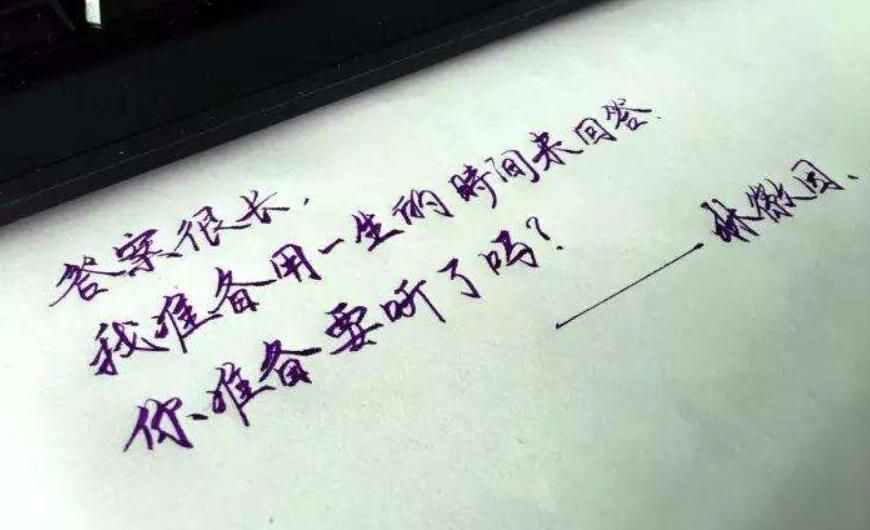 答案很长，
我准备用一生的時间来回答.
你准备要听了吗？
——林徽因、